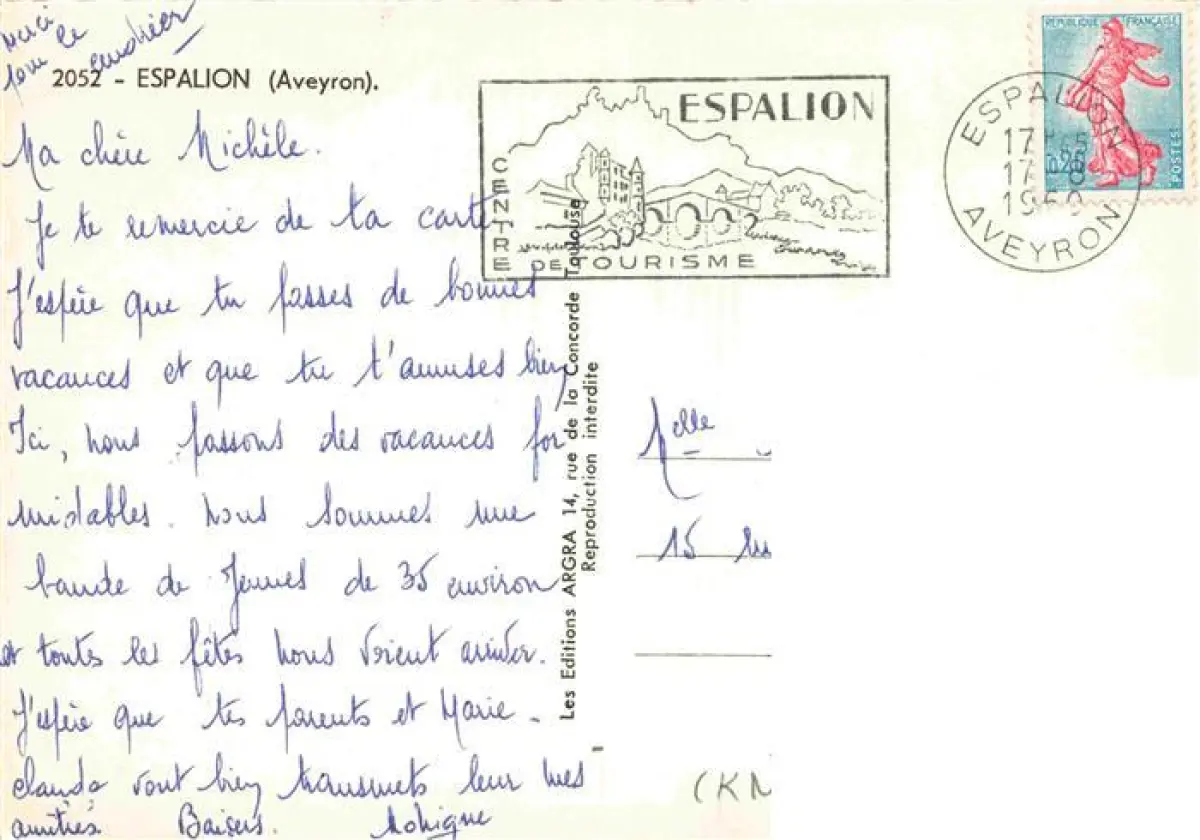 Merci
pour le
cendrier
2052 - ESPALION (Aveyron).
Ma chère Michèle.
Je te remercie de ta carte
J'espère que tu passes de bonnes
vacances et que tu t'amuses bien
Ici, nous passons des vacances for
midables. Nous sommes une
bande de Jeunes de 35 environ
et toutes les fêtes nous voient arriver.
J'espère que tes parents et Marie-
claude vont bien transmets leur mes
amitiés. Baisers. Monique
Les Editions ARGRA 14, rue de la Concorde Toulouse
Reproduction interdite
ESPALION
CENTRE
DE TOURISME
REPUBLIQUE FRANÇAISE
0,25
POSTES
ESPALION
17
17
AVEYRON
Melle
15
(K